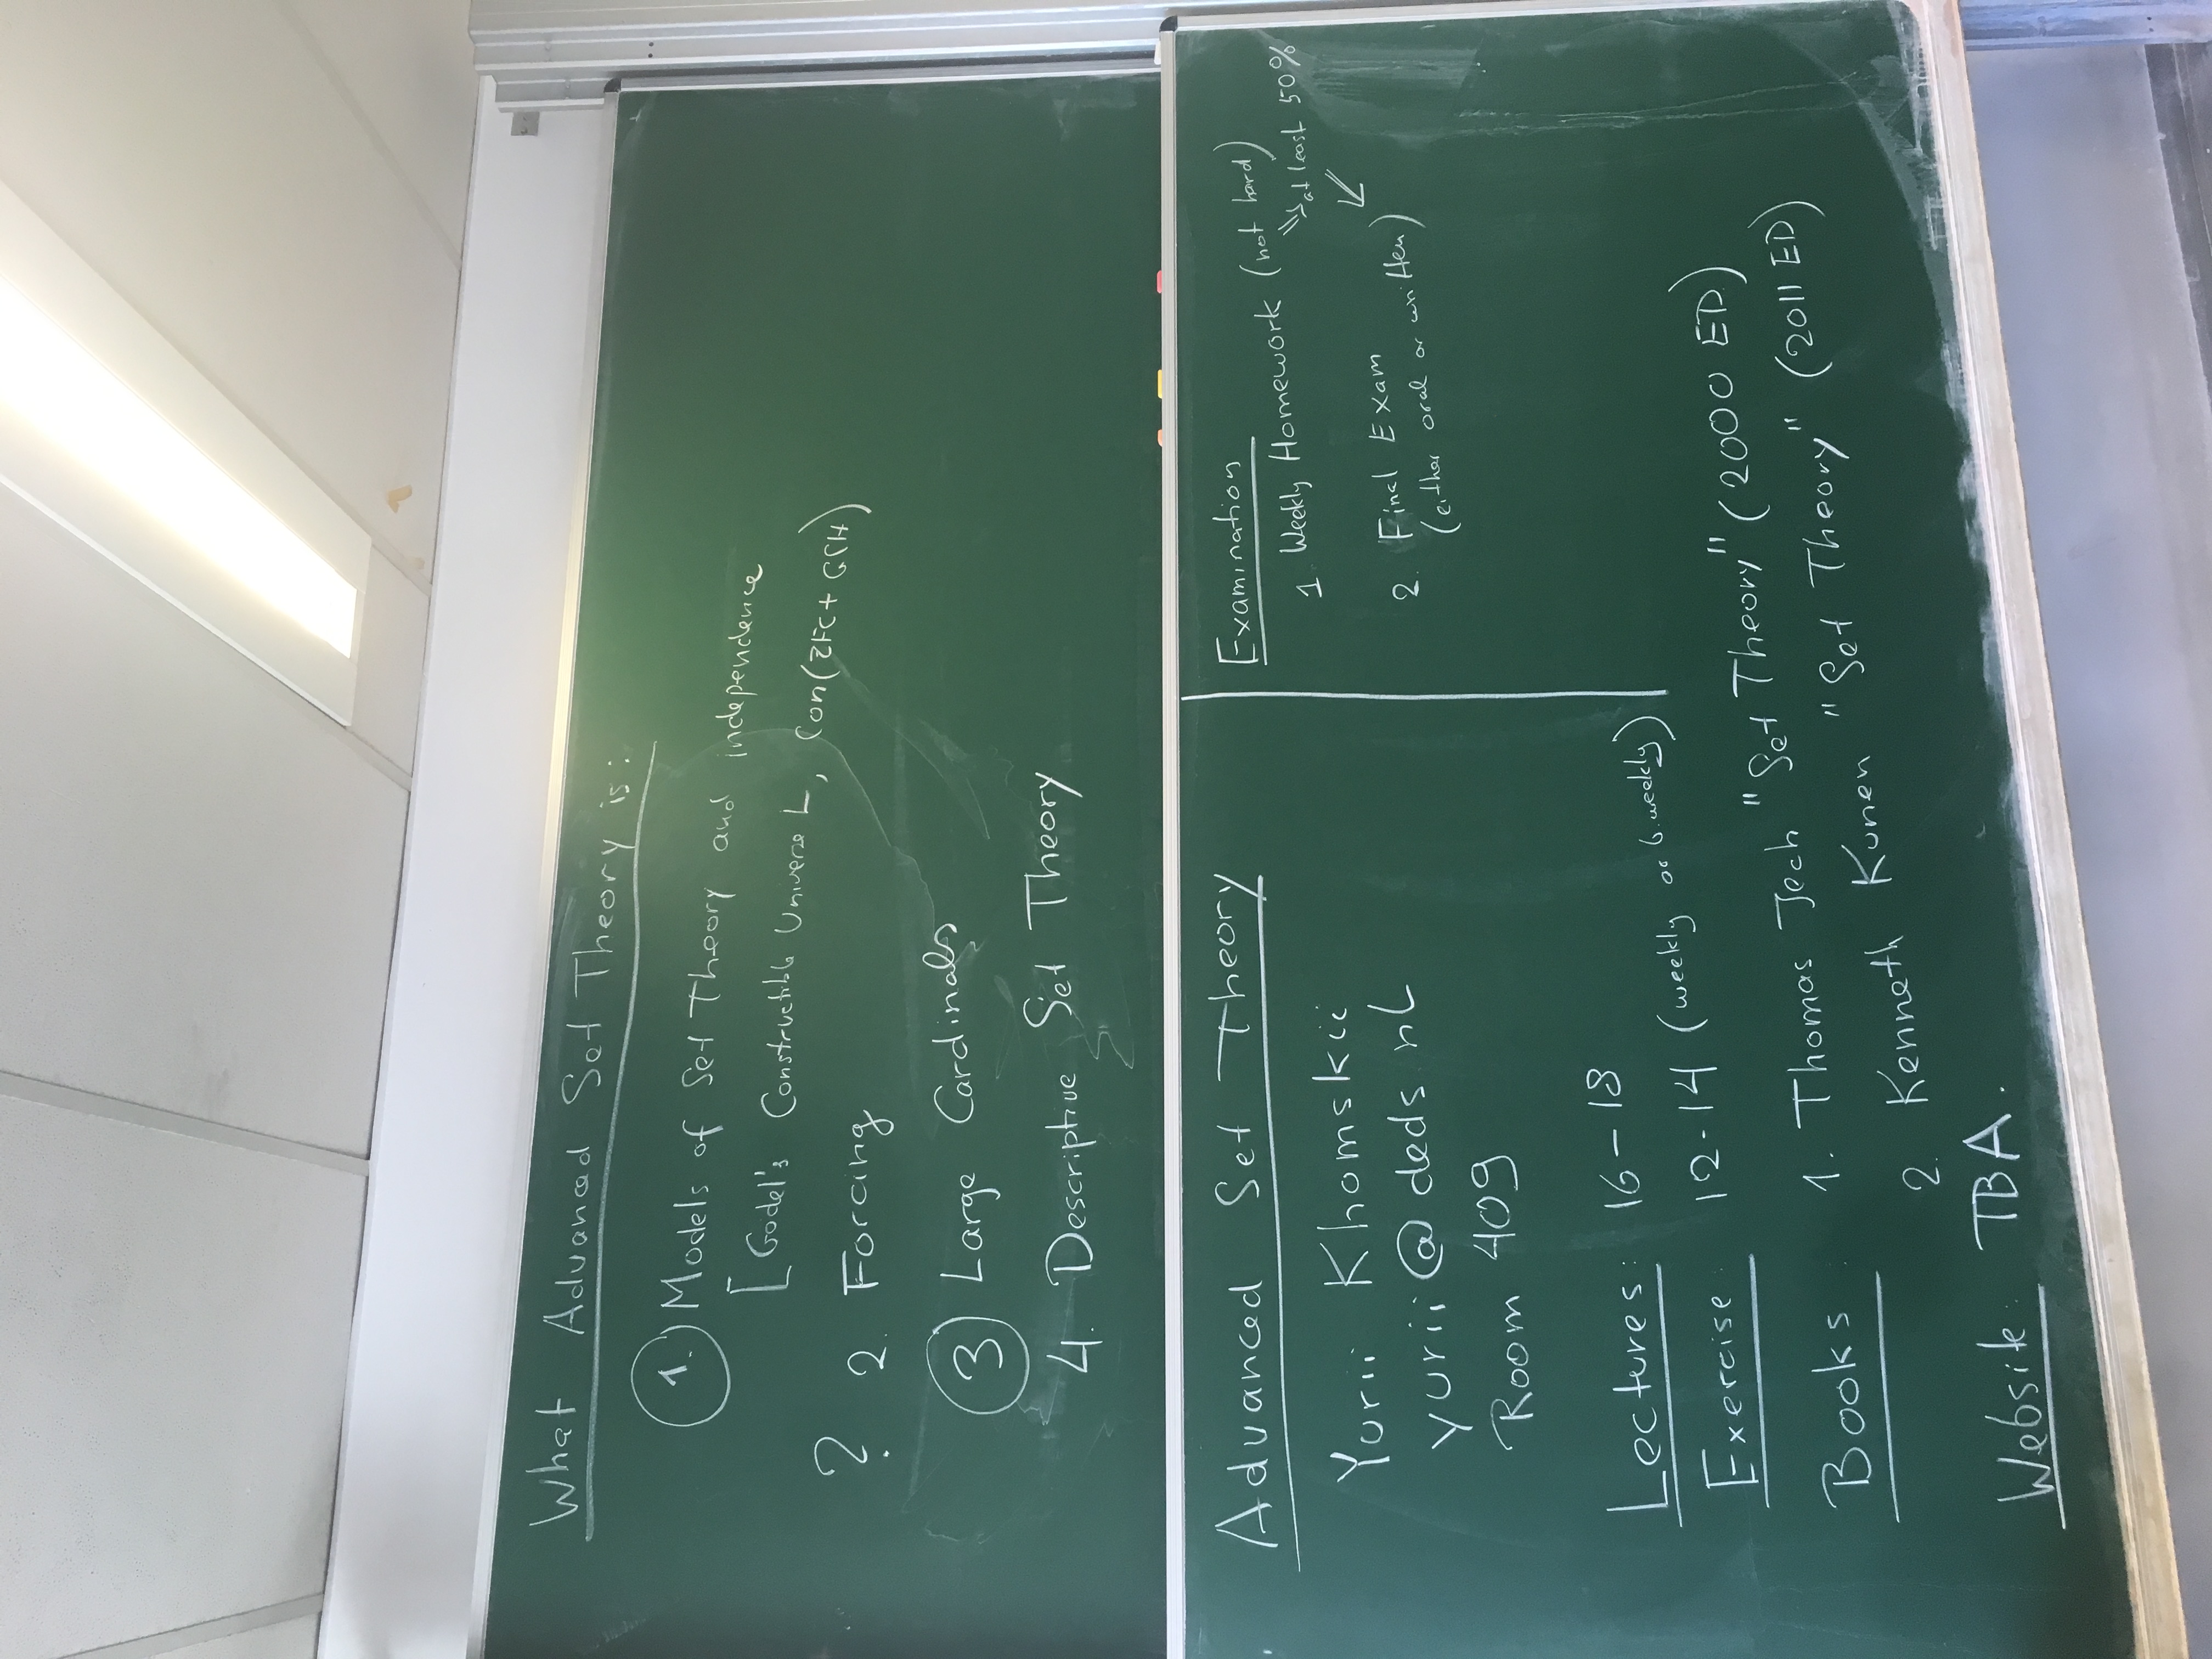 What Advanced Set Theory is:
1. Models of Set Theory and independence
[Gödel's Constructible Universe L, Con(ZFC + GCH)
? 2. Forcing
3 Large Cardinals
4. Descriptive Set Theory
Advanced Set Theory
Yurii Khomskii
yurii@deds.nl
Room 409
Lectures: 16-18
Exercise: 12-14 (weekly or biweekly)
Books: 1. Thomas Jech "Set Theory" (2000 ED.)
2. Kenneth Kunen "Set Theory" (2011 ED)
Website: TBA.
Examination
1. Weekly Homework (not hard)
⇒ at least 50%
2. Final Exam
(either oral or written)